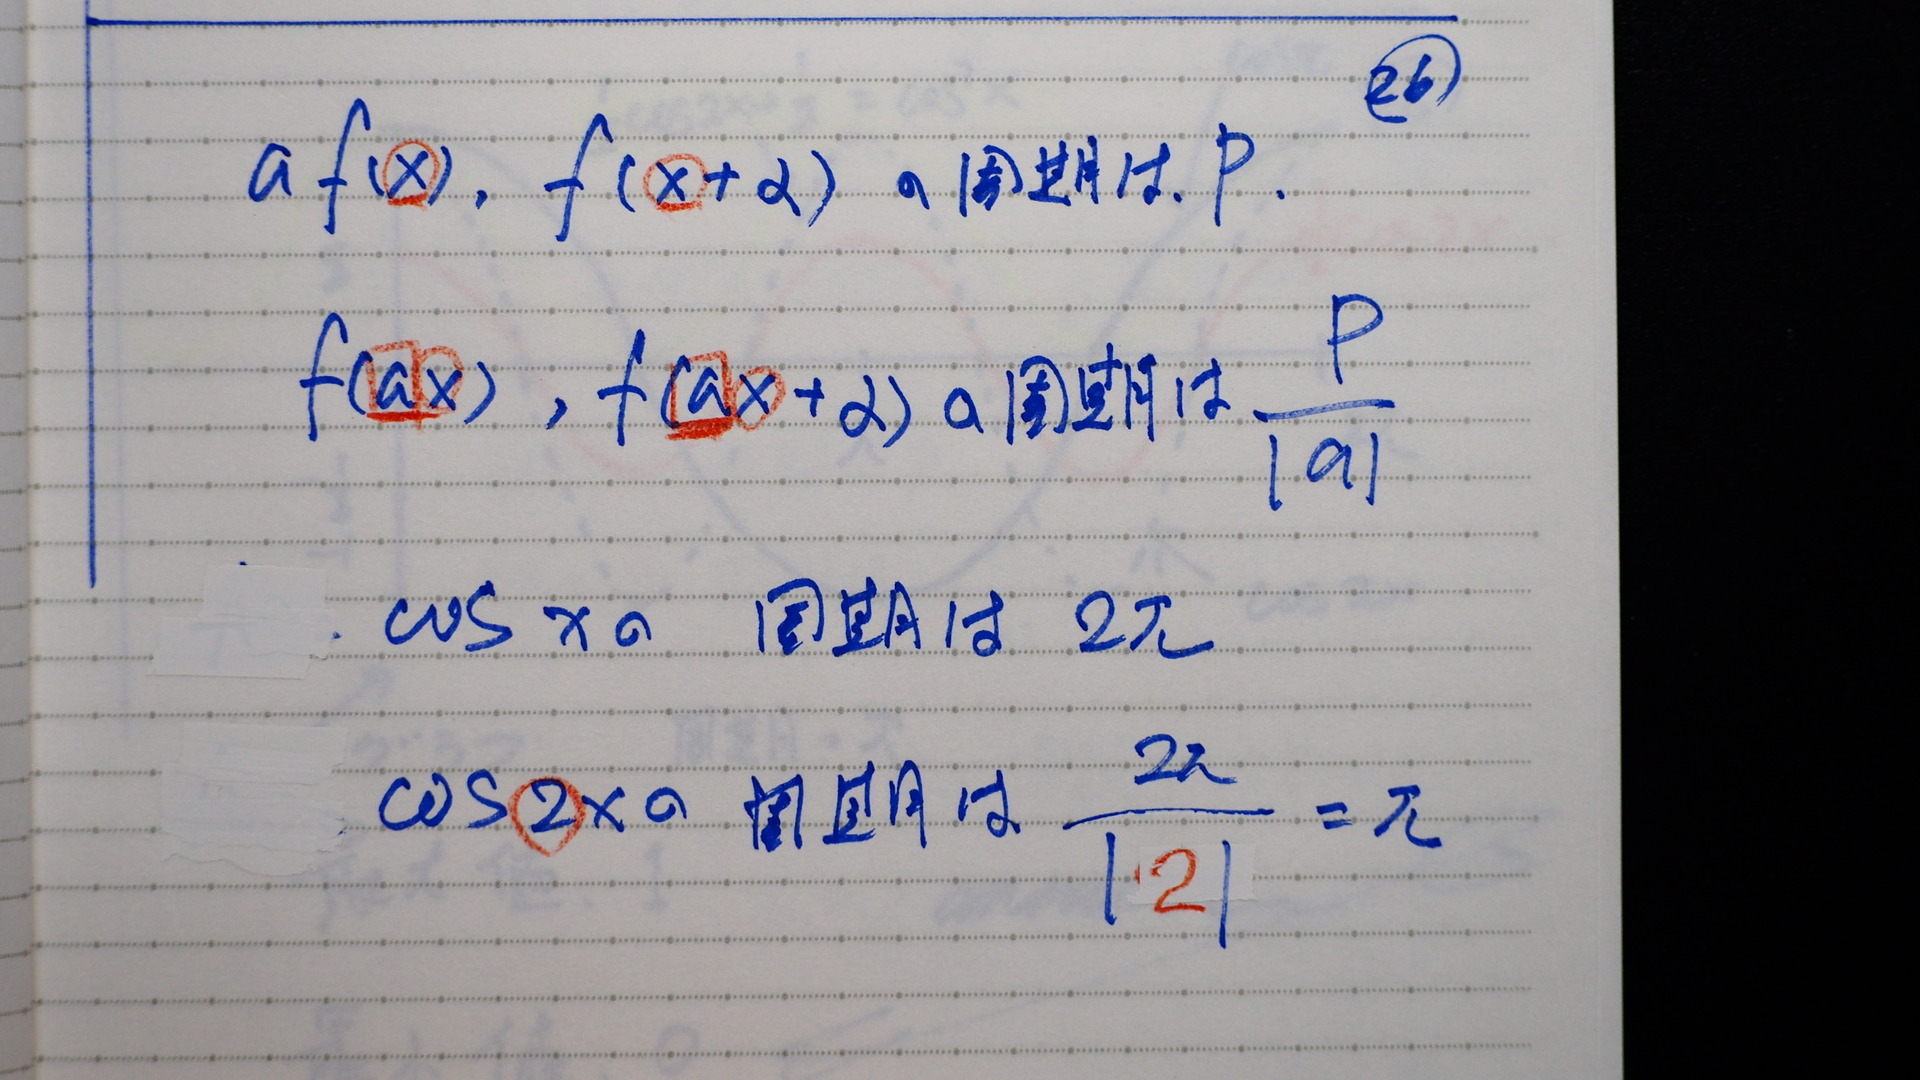 26
a f(x), f(x+α) の周期は. P.
f(ax), f(ax+α) の周期は P/|a|
cos x の 周期は 2π
cos 2x の 周期は 2π/|2| = π